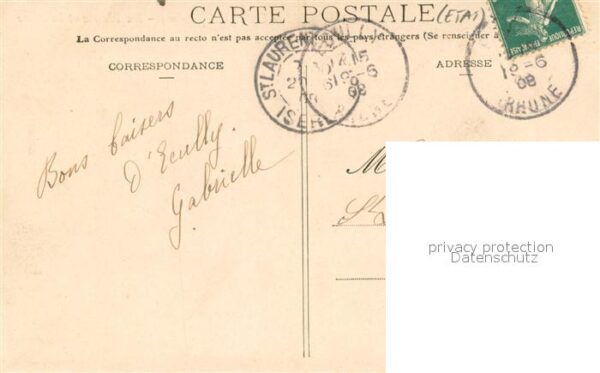 CARTE POSTALE (ETAT)
La Correspondance au recto n'est pas acceptée par tous les pays étrangers (Se renseigner à
CORRESPONDANCE
ADRESSE
ST LAURENT
20
ISERE
6
08
6
08
RHONE
Bons baisers
D'Ecully.
Gabrielle
M
St
privacy protection
Datenschutz